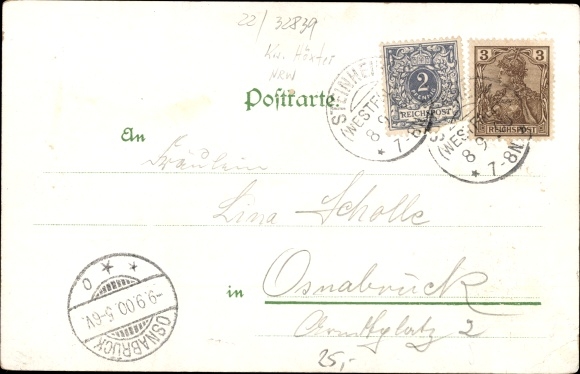 22/32839
Krs. Höxter
NRW
Postkarte
2
REICHSPOST
3
REICHSPOST
STEINHEI
(WESTF
8 9
* 7-8N
(WESTF
8 9
* 7-8N
An
Fräulein
Lina Scholle
in Osnabrück
2
25,-
OSNABRÜCK
-9.9.00.5-6V.